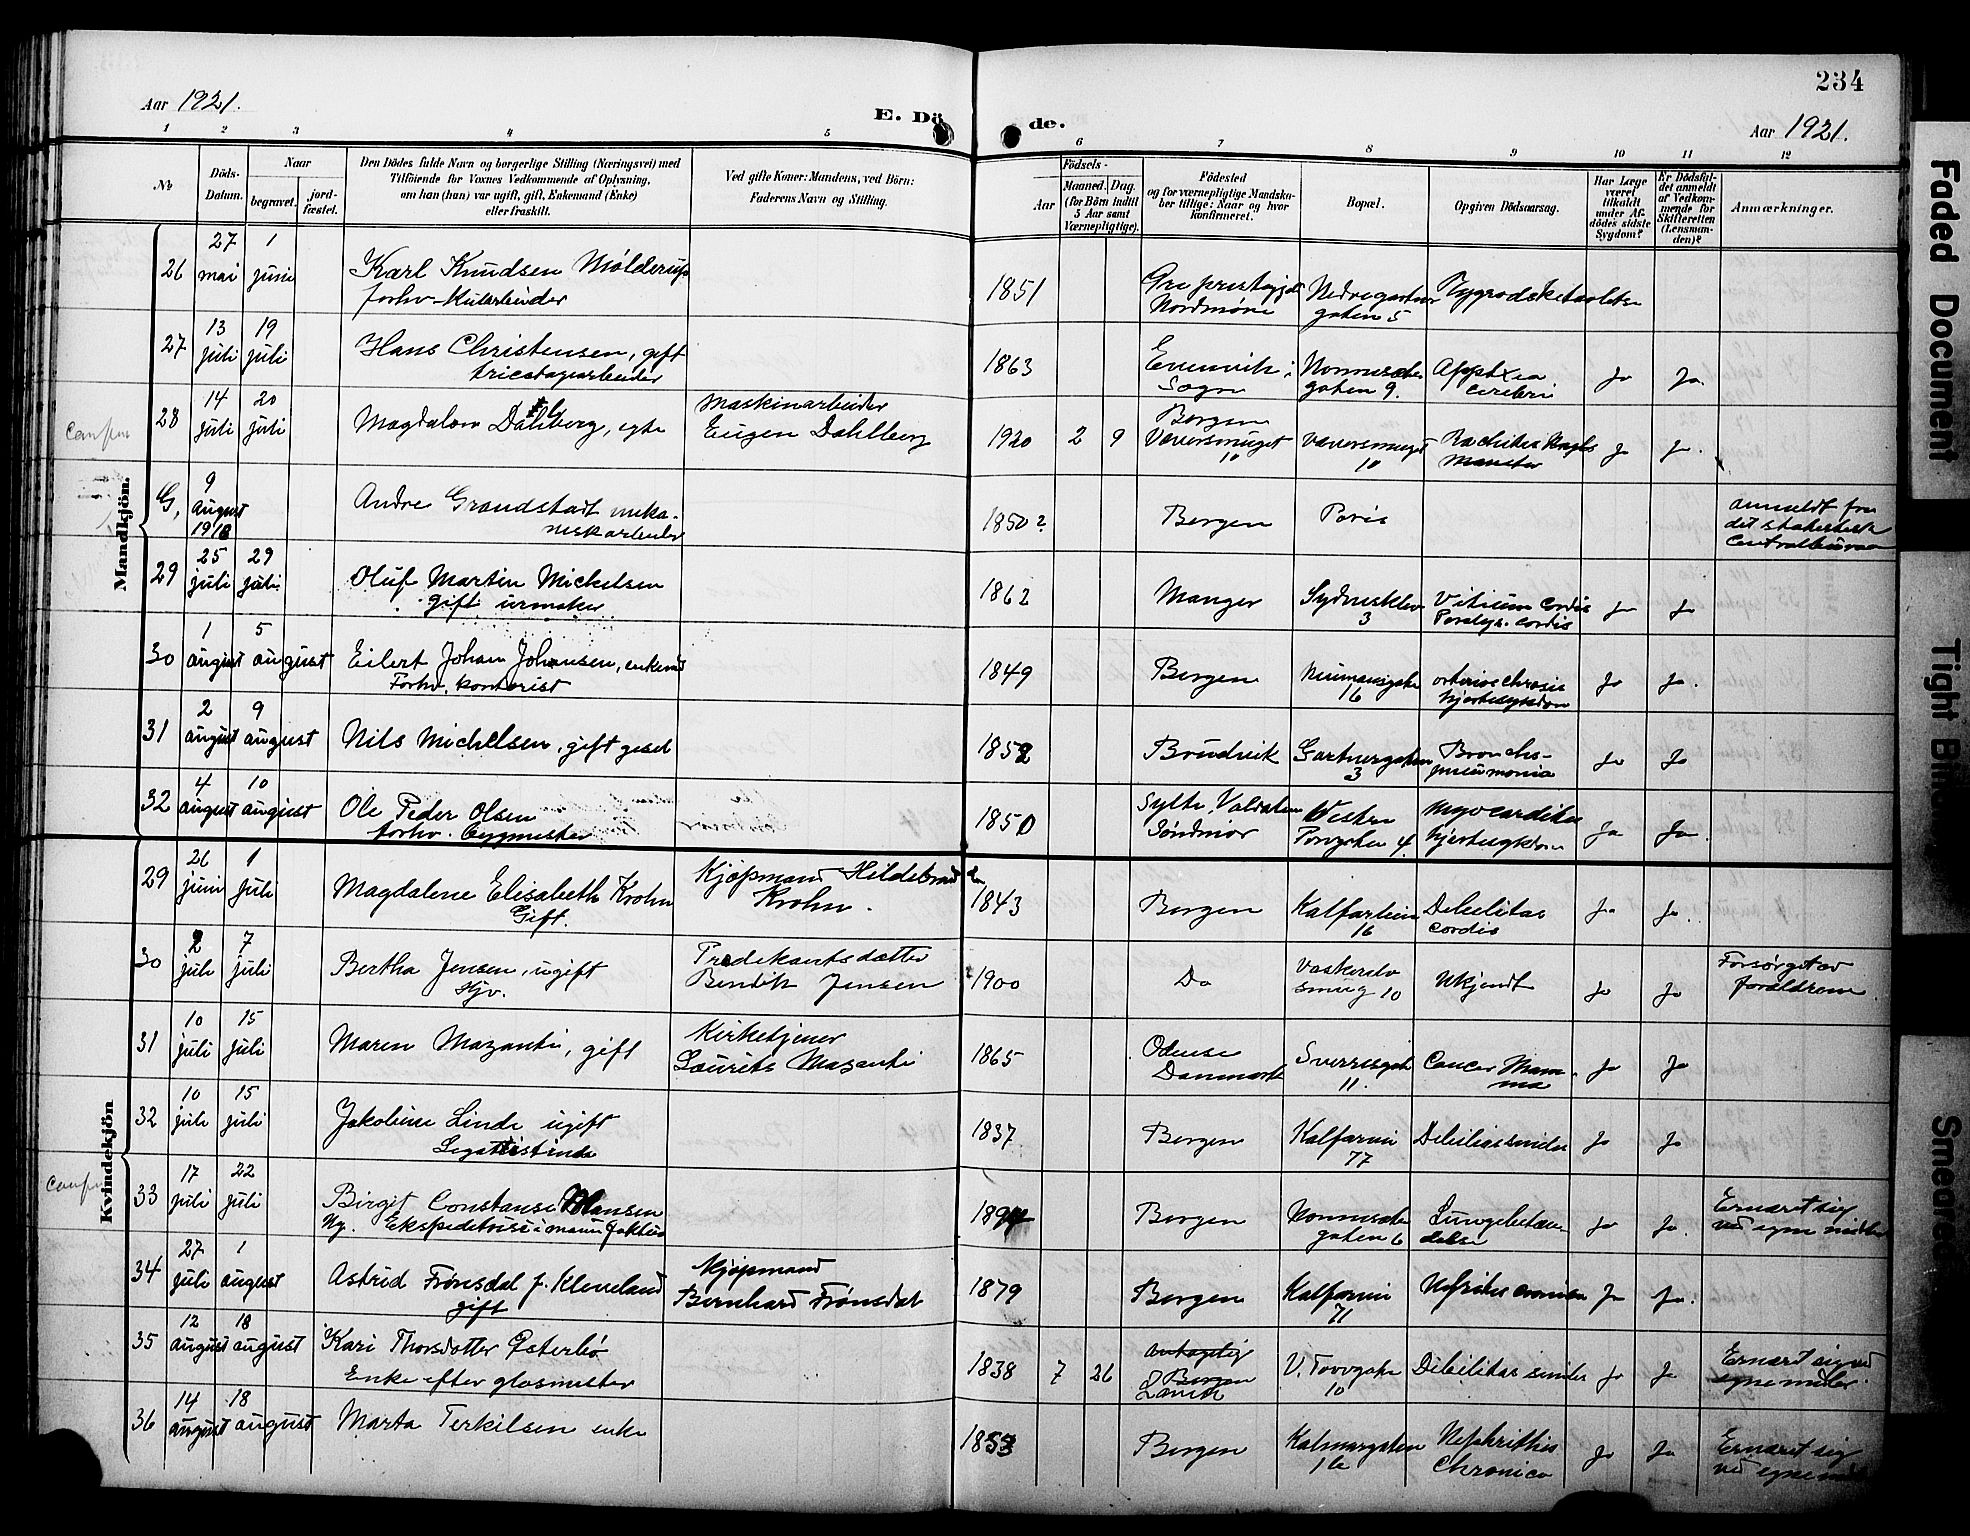 234
Aar 1921.
E. Dö
de.
Aar 1921.
1 2 3 4 5 6 7 8 9 10 11 12
No
Döds-
Datum.
Naar
begravet.
jord-
fæstet.
Den Dödes fulde Navn og borgerlige Stilling (Næringsvei) med
Tilföiende for Voxnes Vedkommende af Oplysning,
om han (hun) var ugift, gift, Enkemand (Enke)
eller fraskilt.
Ved gifte Koner: Mandens, ved Börn:
Faderens Navn og Stilling.
Födsels-
Aar
Maaned.
Dag.
(for Börn indtil
5 Aar samt
Værnepligtige).
Födested
og for værnepligtige Mandska-
ber tillige: Naar og hvor
konfirmeret.
Bopæl.
Opgiven Dödsaarsag.
Har Læge
været
tilkaldt
under Af-
dödes sidste
Sygdom?
Er Dödsfal-
det anmeldt
af Vedkom-
mende for
Skifteretten
(Lensman-
den)?
Anmærkninger.
Mandkjön.
26 27 mai 1 juni Karl Knudsen Mölderup
forhv.
1851
Nordmøre
gaten 5
27 13 juli 19 juli Hans Christensen, gift
1863
Sogn
gaten 9.
cerebri
Ja Ja.
28 14 juli 20 juli Dahlberg, egte
Maskinarbeider
Eugen Dahlberg
1920 2 9
Bergen
Væversmuget
10
Væversmuget
10
Ja Ja.
G, 9 august 1918
Andre Grandstadt meka-
niskarbeider
1850? Bergen Paris
anmeldt fra
det statistiske
Centralbureau
29 25 juli 29 juli Oluf Martin Mickelsen
gift urmaker
1862 Manger
3
Vitium cordis
Paralys. cordis
Ja Ja
30 1 august 5 august Eilert Johan Johansen, enkem
Forhv. kontorist
1849 Bergen Neumansgate
16
hjertesykdom
Ja Ja.
31 2 august 9 august Nils Michelsen, gift
1852 Gartnergaten
3
Broncho-
pneumonia
Ja Ja
32 4 august 10 august Ole Peder Olsen
forhv. bygmester
1850 Sylte, Valdalen
Søndmør
Vestre
Torvgaten 4
Myocarditis
hjertesykdom
Ja Ja.
Kvindekjön
29 26 juni 1 juli Magdalene Elisabeth Krohn
Gift.
Kjøpmand Hildebrand
Krohn.
1843 Bergen Kalfarveien
16
Debilitas
cordis
Ja Ja.
30 2 juli 7 juli Bertha Jensen, ugift
Hjv.
Predikantsdatter
Bendik Jensen
1900 Do
smug 10
Ukjendt Ja Ja
Forsørget av
forældrene.
31 10 juli 15 juli Maren Mazanti, gift
Kirketjener
Laurits Masanti
1865 Odense
Danmark
Sverresgate
11.
Cancer Mam-
ma
Ja Ja
32 10 juli 15 juli Jakobine Linde ugift
Legatistinde
1837 Bergen Kalfarvei
77
Debilitas senilis Ja Ja
33 17 juli 22 juli Birgit Constanse Hansen
Ug. Ekspeditrise i manufaktur
Bergen Nonneseter
gaten 6
Lungebetæn-
delse
Ja Ja.
Ernæret sig
ved egne midler
34 27 juli 1 august Astrid Frønsdal f. Kleveland
gift
Kjøpmand
Bernhard Frønsdal
1879 Bergen Kalfarvei
71
Ja Ja.
35 12 august 18 august Kari Thorsdotter Østerbø
Enke efter glasmester
1838 7 26
antagelig
Bergen
V. Torvgate
10
Debilitas senilis Ja Ja
Ernæret sig ved
egne midler.
36 14 august 18 august Marta Terkilsen enke
1853 Bergen Kalmargaten
16
Nephrithis
Chronica
Ja Ja
Ernæret sig
ved egne midler
Faded Document
Tight Bin
Smeared